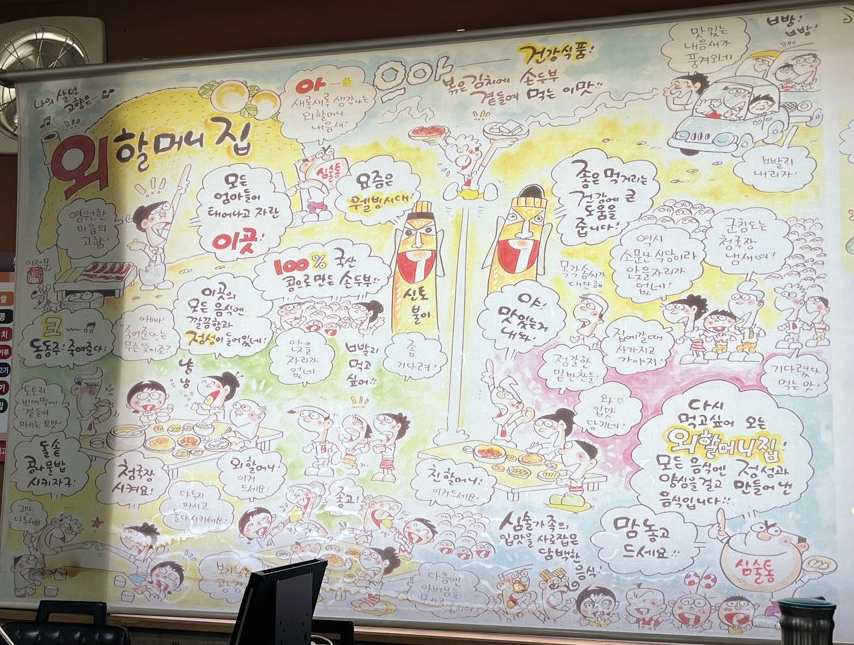 나의 살던 고향은
외할머니 집
아
새록새록 생각나는
외할머니
내음새!
음아
건강식품!
볶은김치에 손두부
곁들여 먹는 이맛!!
맛있는
내음새가
풍겨오네
뛰뛰
빵빵!
빵빵!
빨리
내리자!
영원한
마음의
고향!
모든
엄마들이
태어나고 자란
이곳!
심술통
요즘은
웰빙시대!
좋은 먹거리는
건강에 큰
도움을
줍니다!
역시
소문난 집이라
앉을자리가
없네!
군침도는
청국장
냄새여!
이곳의
모든 음식엔
깔끔함과
정성이 들어있네!
100% 국산
콩으로 만든 손두부!!
신토
불이
야!
맛있는거
내놔!
크
동동주! 죽여준다!
아빠!
죽여준다는
앉을
자리가
없네
빨리
먹고
싶어!!
좀
기다려!
정갈한
밑반찬들!
와
입맛
당기네!
집에갈때
사가지고
가야지!
기다렸다
먹는 맛!
냠
냠
도토리
빈대떡에
곁들여
마시는 요맛!
돌솥
콩나물밥
시키자구!
청국장
시켜요!
외할머니!
이거
드세요!
다투지
마시고
좋고!
친할머니!
이거드세요!
다시
먹고싶어 오는
외할머니집!
모든 음식엔 정성과
양심을 걸고 만들어 낸
음식입니다!!
심술가족의
입맛을 사로잡은
담백한
음식!
맘놓고
드세요!!
심술통
다음엔